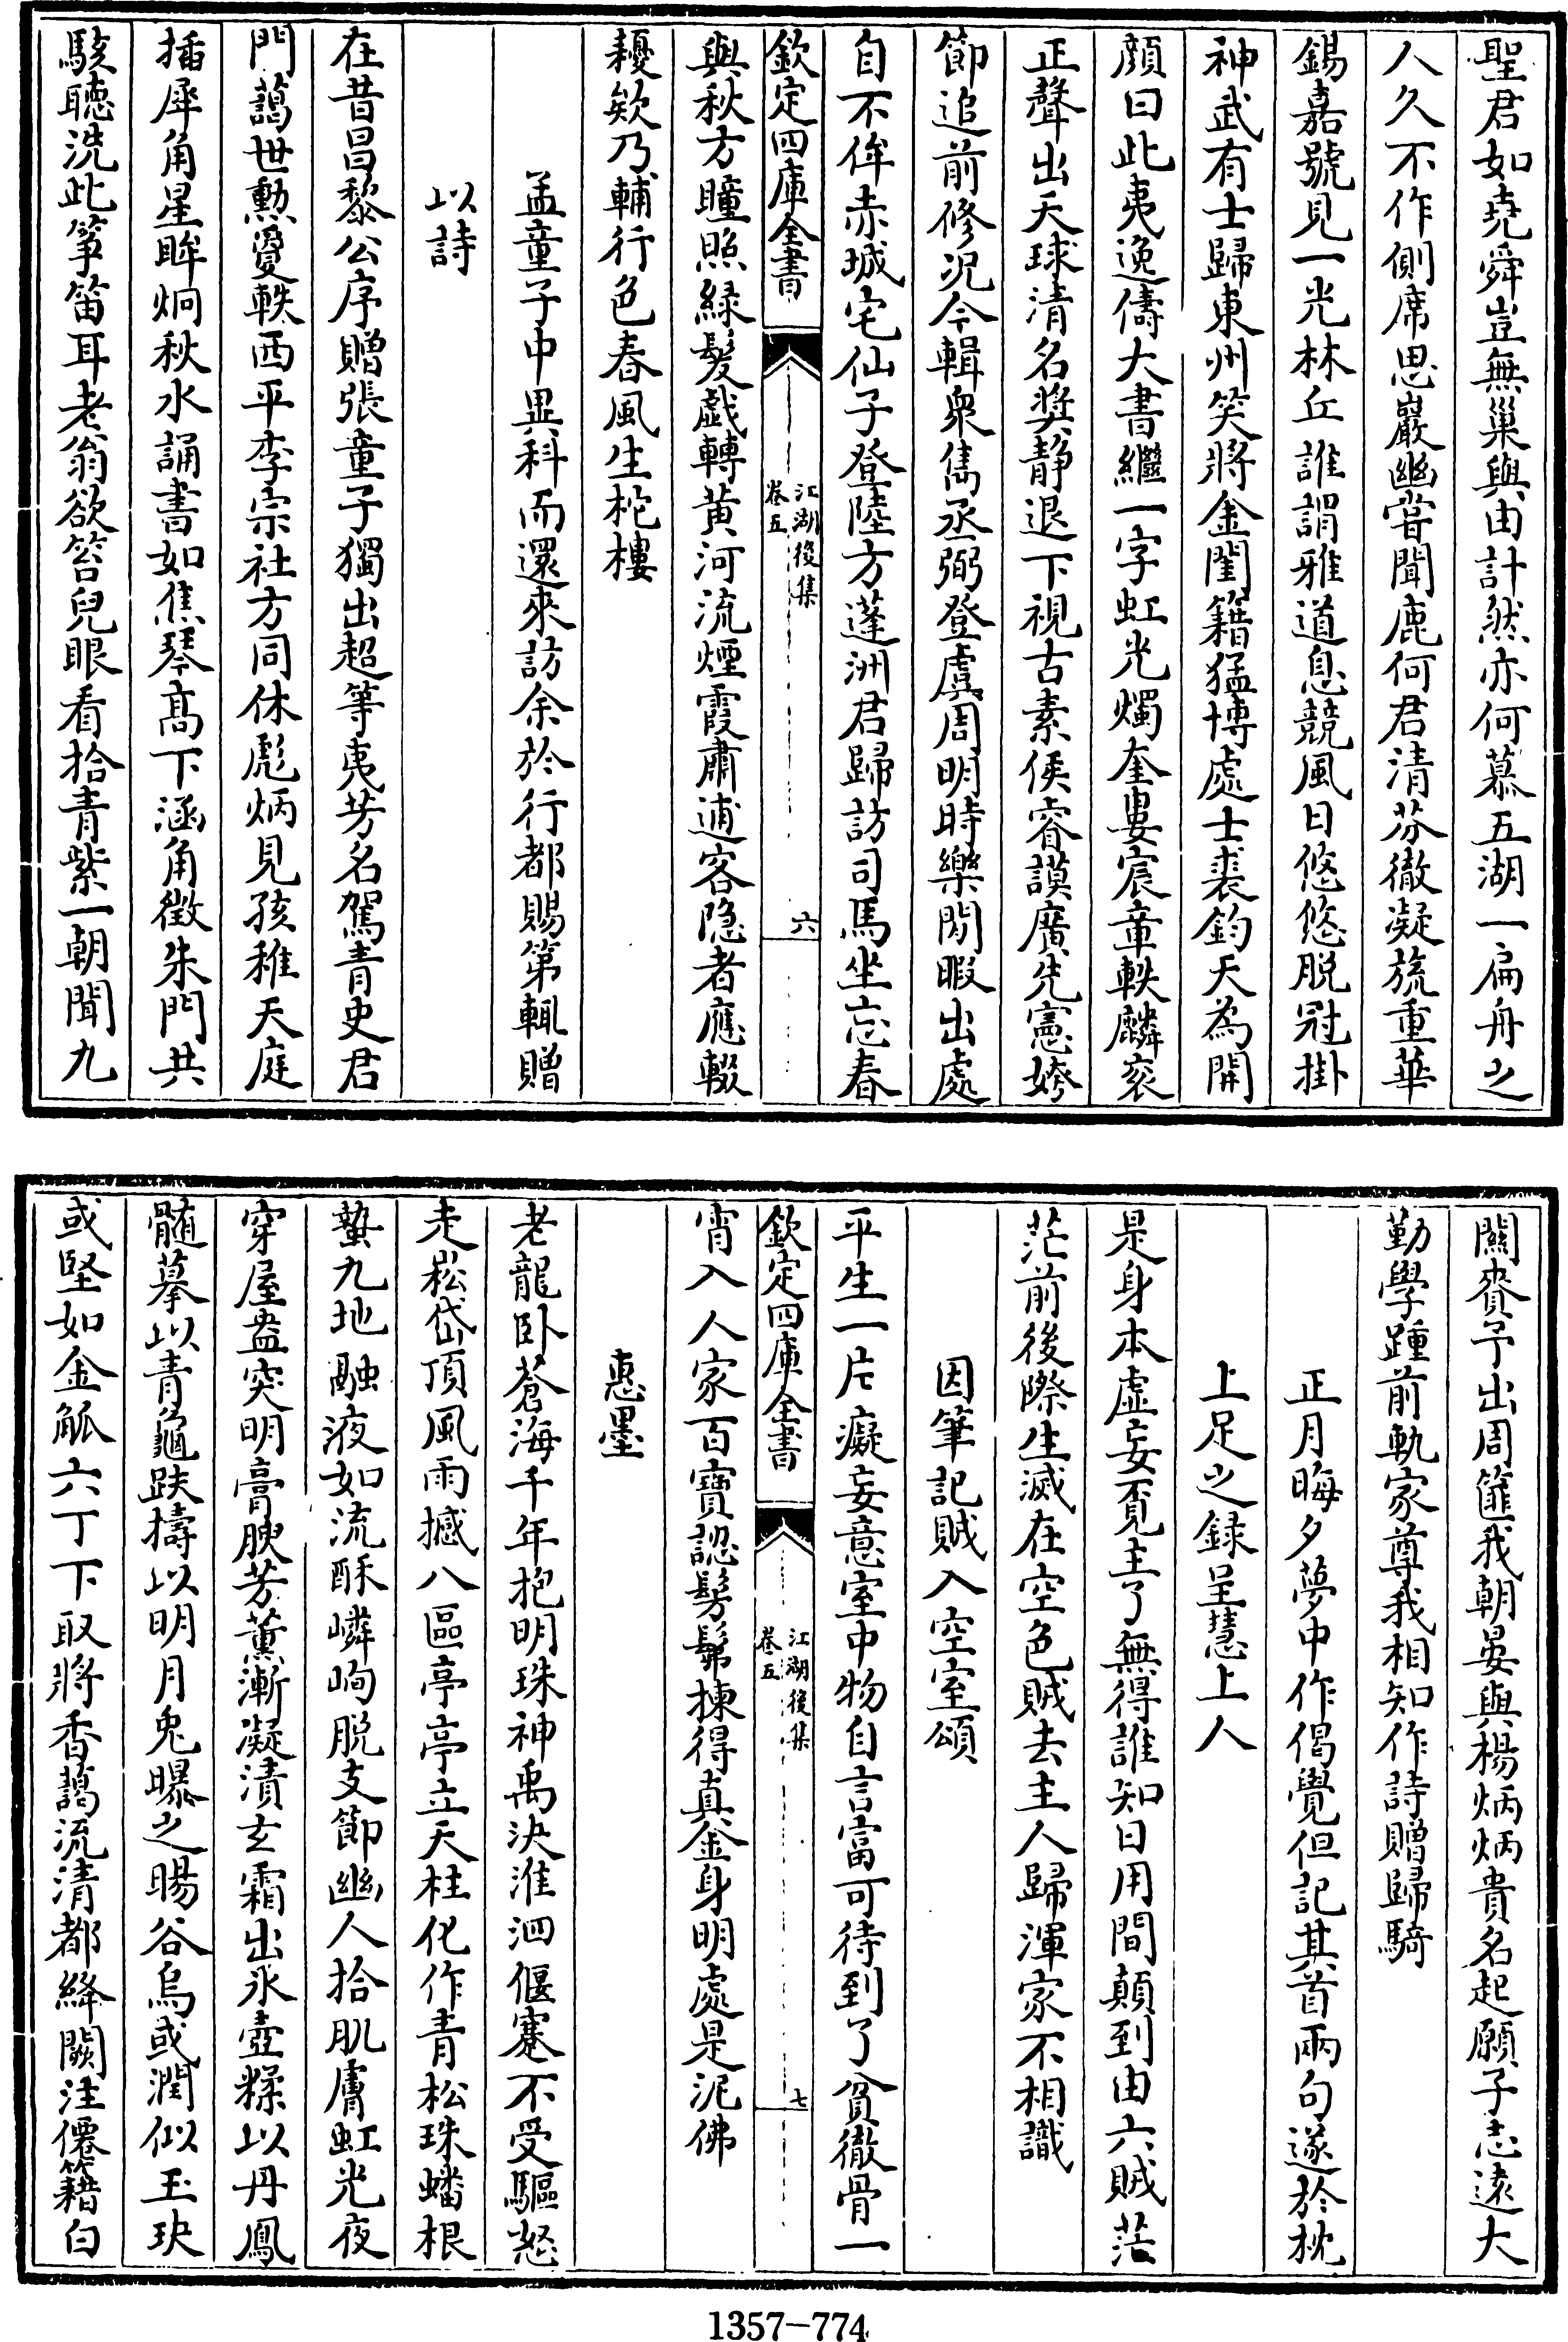 聖君如堯舜豈無巢與由計然亦何慕五湖一扁舟之
人久不作側席思巖幽嘗聞鹿何君清芬徹凝旒重華
錫嘉號見一光林丘誰謂雅道息競風日悠悠脱冠掛
神武有士歸東州笑將金閨籍猛博處士裘鈞天為開
顔曰此夷逸儔大書繼一字虹光燭奎婁宸章軼麟衮
正聲出天球清名奬静退下視古素侯睿謨廣先憲姱
節追前修況今輯衆雋丞弼登虞周明時樂閒暇出處
自不侔赤城宅仙子登陸方蓬洲君歸訪司馬坐忘春
欽定四庫全書
江湖後集
卷五
六
與秋方瞳照緑髮戯轉黄河流煙霞肅逋客隐者應輟
耰欸乃輔行色春風生柁樓
孟童子中異科而還來訪余於行都賜第輒贈
以詩
在昔昌黎公序贈張童子獨出超等夷芳名駕青史君
門藹世勲夐軼西平李宗社方同休彪炳見孩稚天庭
插犀角星眸炯秋水誦書如焦琴髙下涵角徴朱門共
駭聽洗此筝笛耳老翁欲笞兒眼看拾青紫一朝聞九
關賚予出周篚我朝晏與楊炳炳貴名起願子志遠大
勤學踵前軌家尊我相知作詩贈歸騎
正月晦夕夢中作偈覺但記其首兩句遂於枕
上足之録呈慧上人
是身本虚妄覓主了無得誰知日用間顛到由六賊茫
茫前後際生滅在空色賊去主人歸渾家不相識
因筆記賊入空室頌
平生一片癡妄意室中物自言富可待到了貧徹骨一
欽定四庫全書
江湖後集
卷五
七
宵入人家百寶認髣髴揀得真金身明處是泥佛
惠墨
老龍卧蒼海千年抱明珠神禹決淮泗偃蹇不受驅怒
走崧岱頂風雨撼八區亭亭立天柱化作青松珠蟠根
蟄九地融液如流酥嶙峋脱支節幽人拾肌膚虹光夜
穿屋盎突明膏腴芳薰漸凝漬玄霜出氷壺糅以丹鳳
髄摹以青龜趺擣以明月兎曝之暘谷烏或潤似玉玦
或堅如金觚六丁下取將香藹流清都絳闕注僊籍白
1357-774